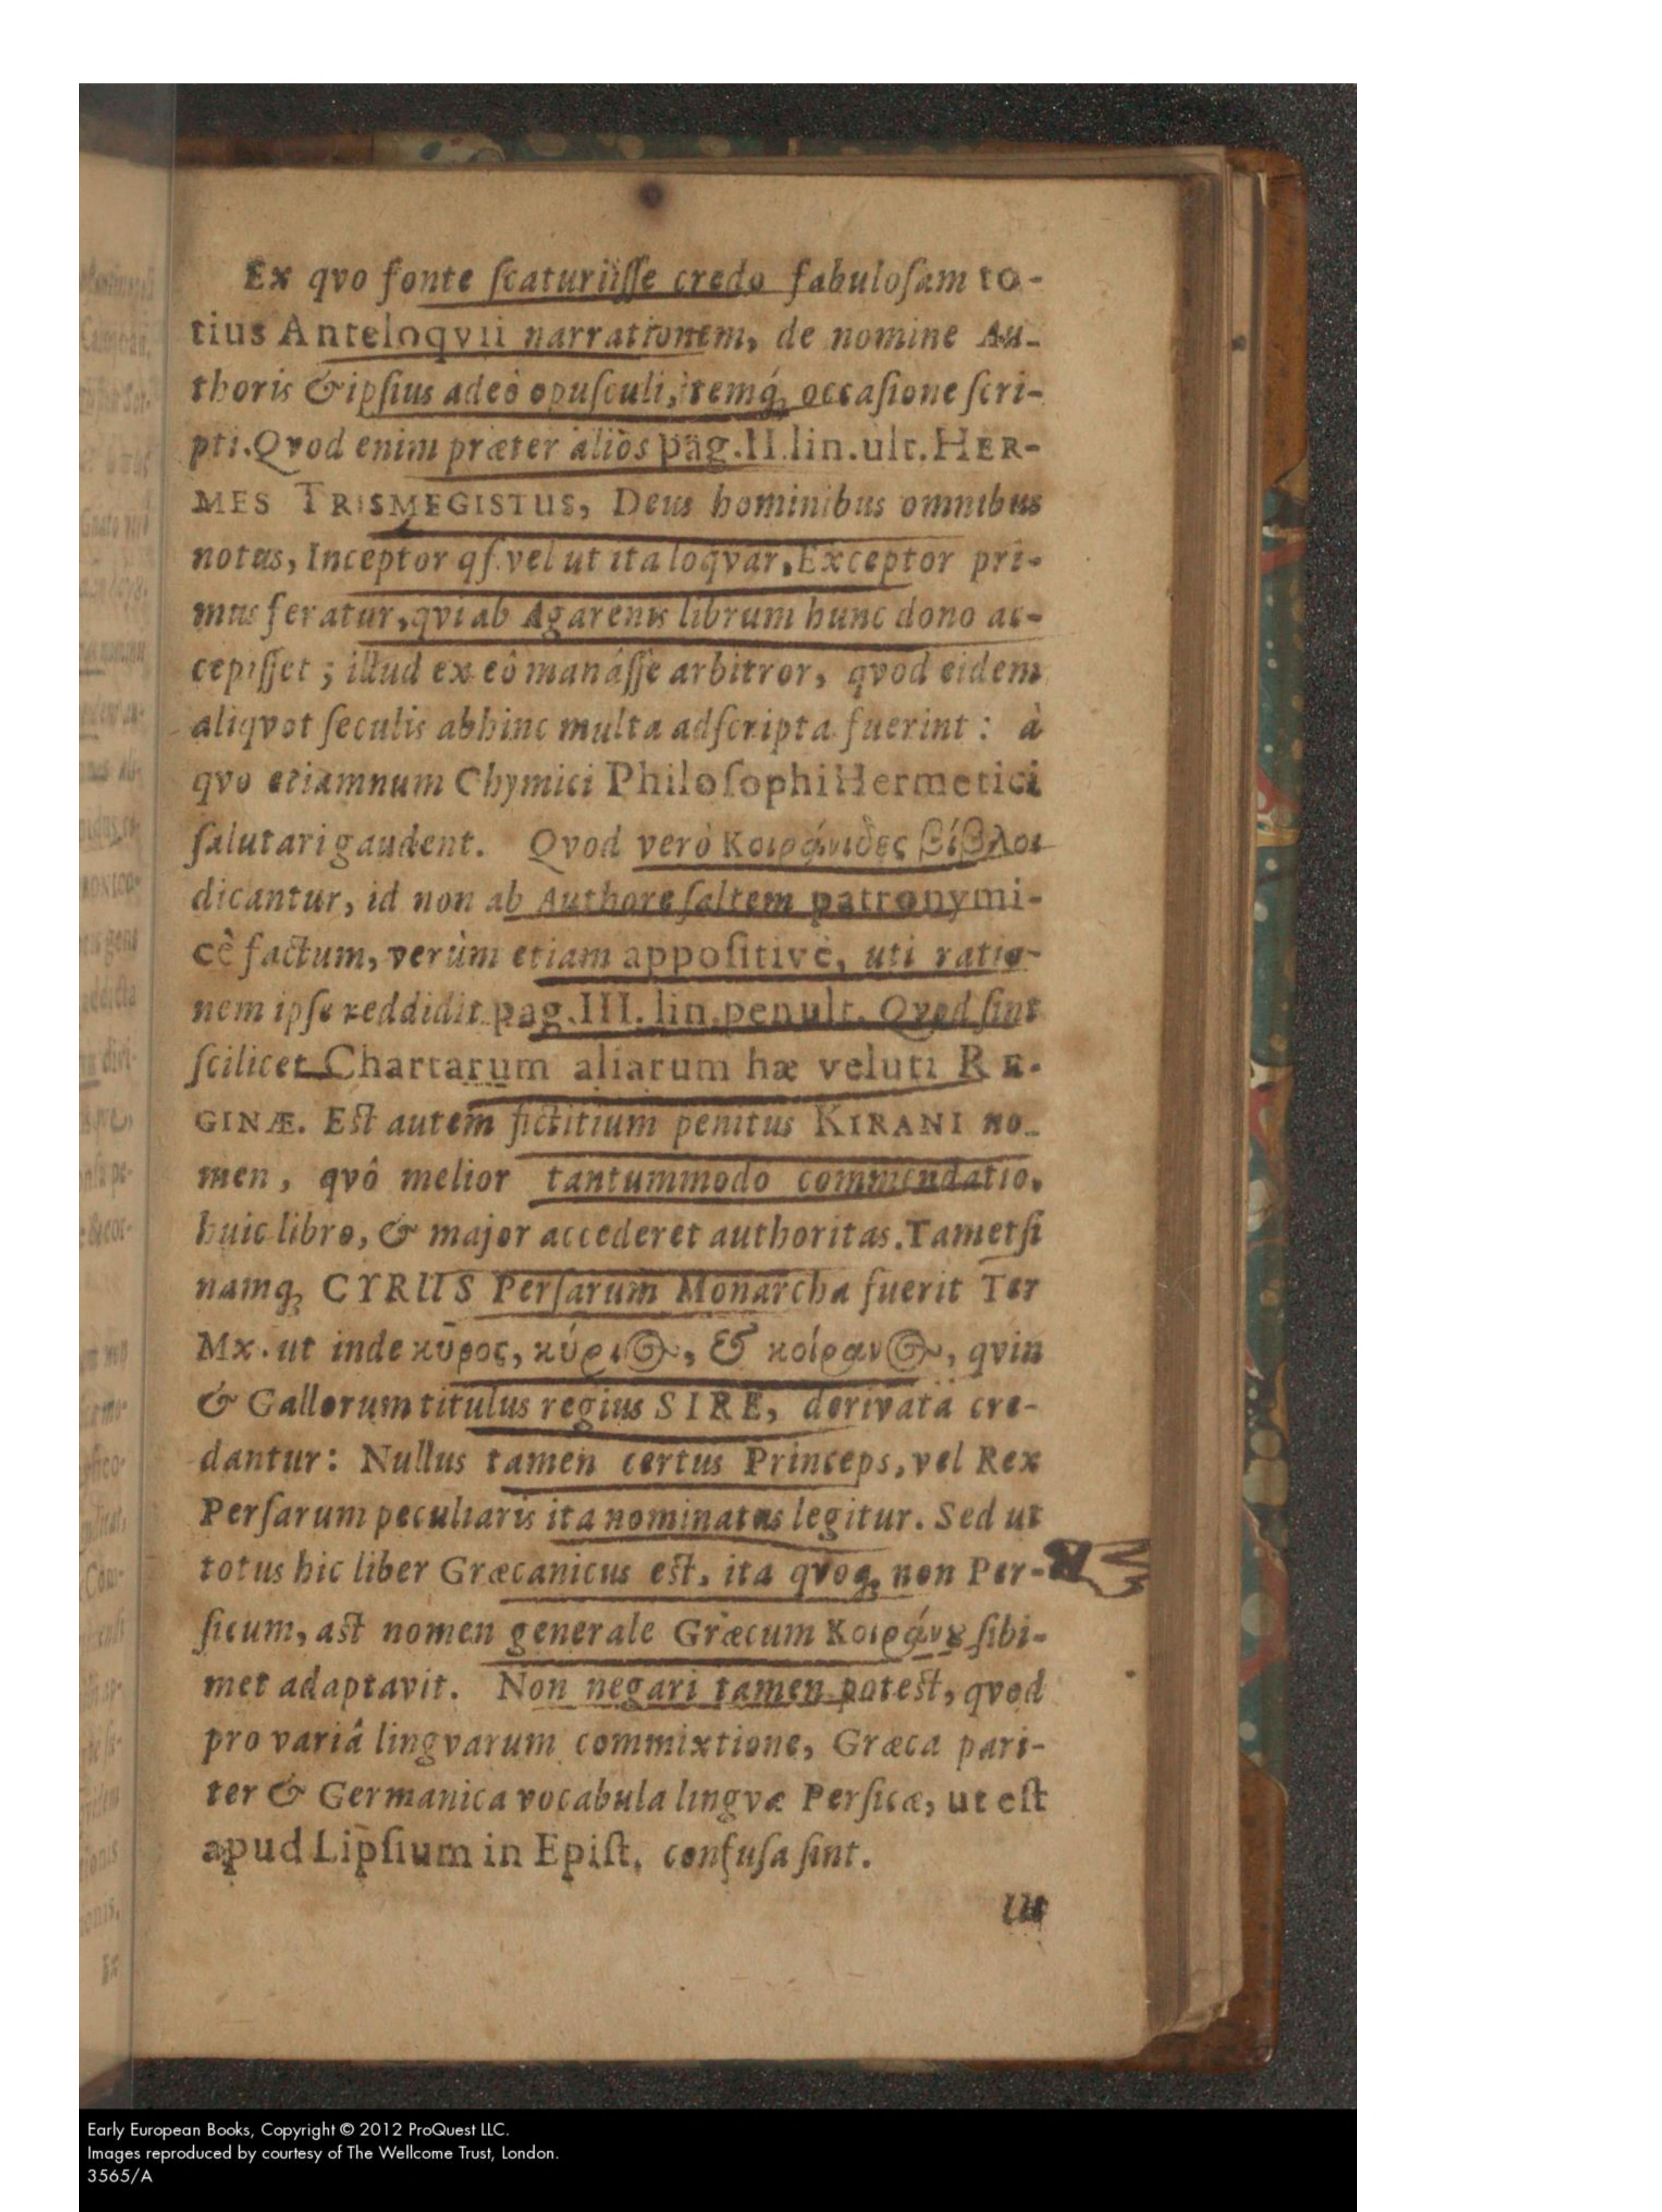 Ex qvo fonte ſcaturiiſſe credo fabuloſam to-
tius Anteloqvii narrationem, de nomine Au-
thoris & ipſius adeò opuſculi, itemq́; occaſione ſcri-
pti. Qvod enim præter aliòs pag. II. lin. ult. HER-
MES TRISMEGISTUS, Deus hominibus omnibus
notus, Inceptor qſ. vel ut ita loqvar, Exceptor pri-
mus feratur, qvi ab Agarenis librum hunc dono ac-
cepiſſet ; illud ex eô manâſſe arbitror, qvod eidem
aliqvot ſeculis abhinc multa adſcripta fuerint : à
qvo etiamnum Chymici Philoſophi Hermetici
ſalutari gaudent. Qvod verò Κοιράνιδες βίβλοι
dicantur, id non ab Authore ſaltem patronymi-
cè factum, verùm etiam appoſitivè, uti ratio-
nem ipſe reddidit pag. III. lin. penult. Qvod ſint
ſcilicet Chartarum aliarum hæ veluti RE-
GINÆ. Eſt autem fictitium penitus KIRANI no-
men, qvô melior tantummodo commendatio,
huic libro, & major accederet authoritas. Tametſi
namq; CYRUS Perſarum Monarcha fuerit Ter
Mx. ut inde κῦρος, κύριος, & κοίρανος, qvin
& Gallorum titulus regius SIRE, derivata cre-
dantur: Nullus tamen certus Princeps, vel Rex
Perſarum peculiaris ita nominatus legitur. Sed ut
totus hic liber Græcanicus eſt, ita qvoq; non Per-
ſicum, aſt nomen generale Græcum Κοιράνȣ ſibi-
met adaptavit. Non negari tamen poteſt, qvod
pro variâ lingvarum commixtione, Græca pari-
ter & Germanica vocabula lingvæ Perſicæ, ut eſt
apud Lipſium in Epiſt. confuſa ſint.
Ut
Early European Books, Copyright © 2012 ProQuest LLC.
Images reproduced by courtesy of The Wellcome Trust, London.
3565/A